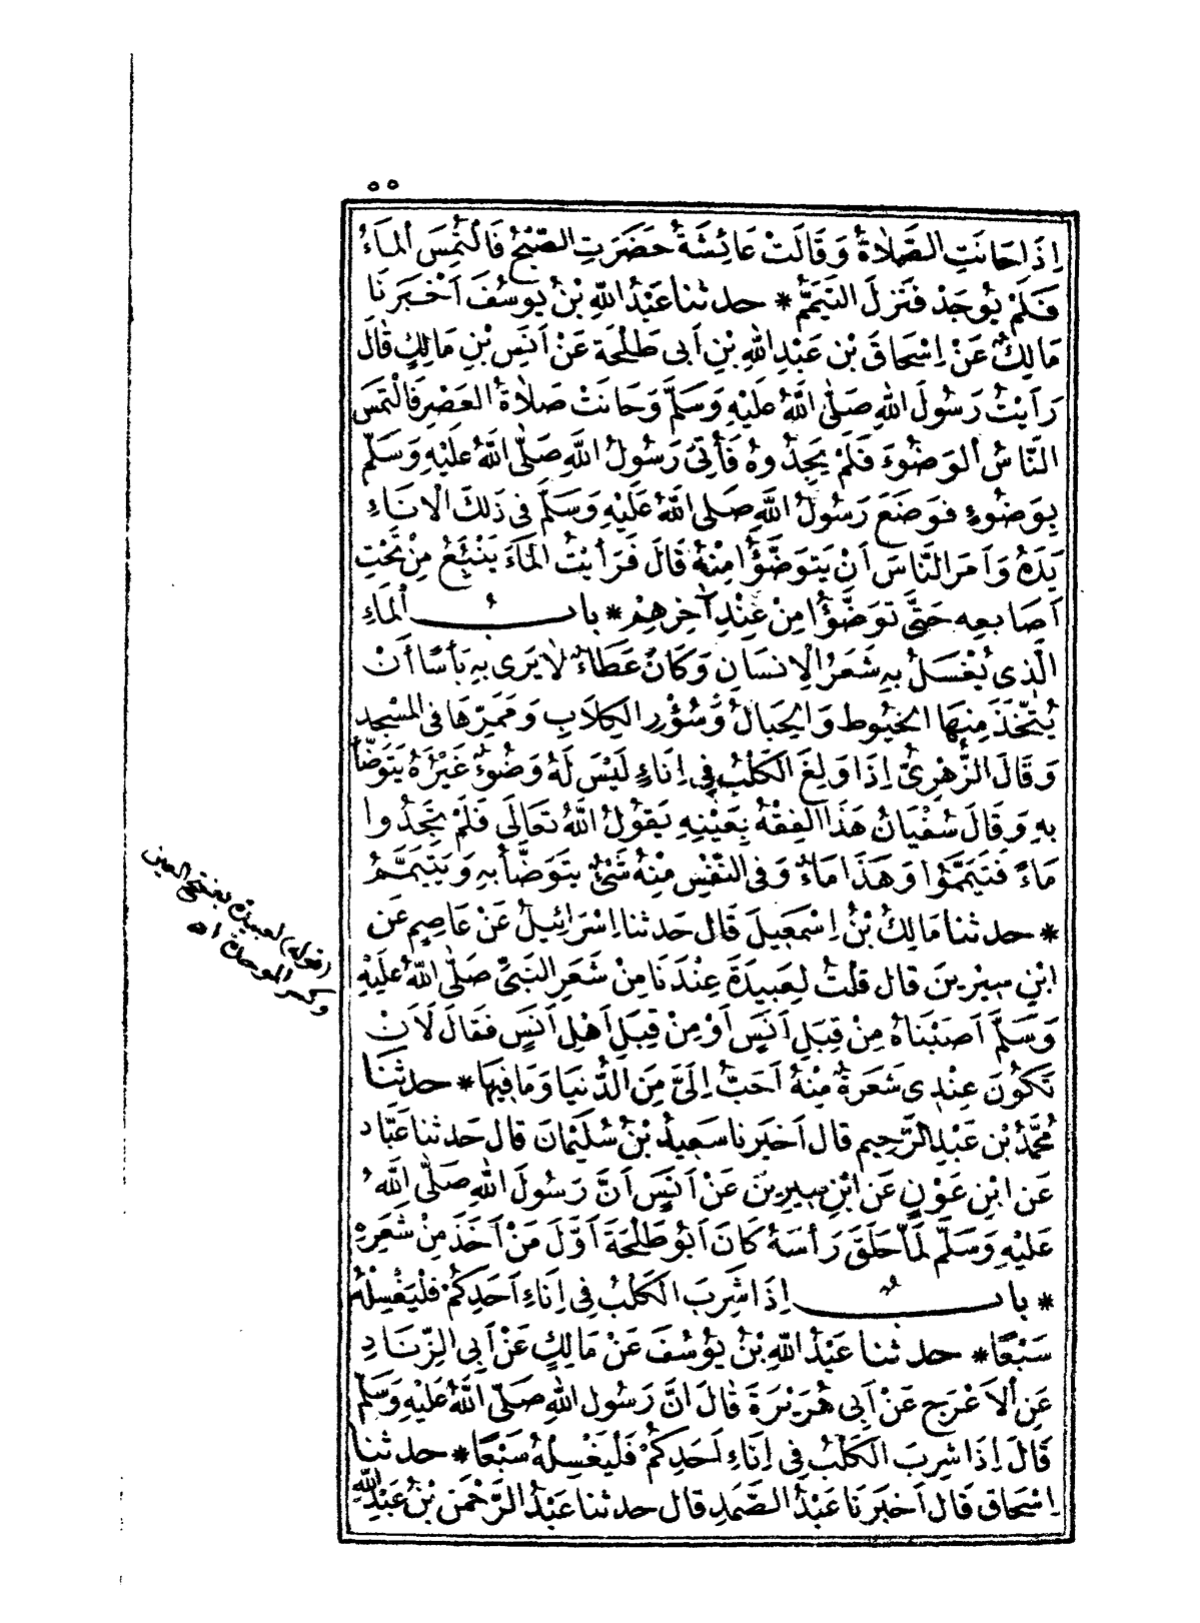 ٥٥
اِذَا حَانَتِ الصَّلَاةُ وَقَالَتْ عَائِشَةُ حَضَرَتِ الصُّبْحُ فَالْتُمِسَ الْمَاءُ
فَلَمْ يُوجَدْ فَنَزَلَ التَّيَمُّمُ * حدثنا عَبْدُ اللهِ بْنُ يُوسُفَ اَخْبَرَنَا
مَالِكٌ عَنْ اِسْحَاقَ بْنِ عَبْدِ اللهِ بْنِ اَبى طَلْحَةَ عَنْ اَنَسِ بْنِ مَالِكٍ قَالَ
رَاَيْتُ رَسُولَ اللهِ صَلَّى اللهُ عَلَيْهِ وَسَلَّمَ وَحَانَتْ صَلَاةُ الْعَصْرِ فَالْتَمَسَ
النَّاسُ الْوَضُوءَ فَلَمْ يَجِدُوهُ فَأُتِىَ رَسُولُ اللهِ صَلَّى اللهُ عَلَيْهِ وَسَلَّمَ
بِوَضُوءٍ فَوَضَعَ رَسُولُ اللهِ صَلَّى اللهُ عَلَيْهِ وَسَلَّمَ فى ذَلِكَ الْاِنَاءِ
يَدَهُ وَاَمَرَ النَّاسَ اَنْ يَتَوَضَّؤُا مِنْهُ قَالَ فَرَأَيْتُ الْمَاءَ يَنْبُعُ مِنْ تَحْتِ
اَصَابِعِهِ حَتَّى تَوَضَّؤُا مِنْ عِنْدِ آخِرِهِمْ * بابُ الْمَاءِ
الَّذِى يُغْسَلُ بِهِ شَعَرُ الْاِنْسَانِ وَكَانَ عَطَاءٌ لَا يَرَى بِهِ بَأْسًا اَنْ
يُتَّخَذَ مِنْهَا الْخُيُوطُ وَالْحِبَالُ وَسُؤْرِ الْكِلَابِ وَمَمَرِّهَا فى الْمَسْجِدِ
وَقَالَ الزُّهْرِىُّ اِذَا وَلِغَ الْكَلْبُ فِى اِنَاءٍ لَيْسَ لَهُ وَضُوءٌ غَيْرُهُ يَتَوَضَّأُ
بِهِ وَقَالَ سُفْيَانُ هَذَا الْفِقْهُ بِعَيْنِهِ يَقُولُ اللهُ تَعَالَى فَلَمْ تَجِدُوا
مَاءً فَتَيَمَّمُوا وَهَذَا مَاءٌ وَفى النَّفْسِ مِنْهُ شَىْءٌ يَتَوَضَّأُ بِهِ وَيَتَيَمَّمُ
* حدثنا مَالِكُ بْنُ اِسْمَعِيلَ قَالَ حَدثنا اِسْرَائِيلُ عَنْ عَاصِمٍ عَنِ
ابْنِ سِيرِينَ قال قُلْتُ لِعَبِيدَةَ عِنْدَنَا مِنْ شَعَرِ النَّبِىِّ صَلَّى اللهُ عَلَيْهِ
وَسَلَّمَ اَصَبْنَاهُ مِنْ قِبَلِ اَنَسٍ اَوْ مِنْ قِبَلِ اَهْلِ اَنَسٍ فَقَالَ لَاَنْ
تَكُونَ عِنْدِى شَعَرَةٌ مِنْهُ اَحَبُّ اِلَىَّ مِنَ الدُّنْيَا وَمَا فِيهَا * حدثنا
مُحَمَّدُ بْنُ عَبْدِ الرَّحِيمِ قال اَخْبَرَنا سَعِيدُ بْنُ سُلَيْمَانَ قال حَدثنا عَبَّاد
عَنِ ابْنِ عَوْنٍ عَنِ ابْنِ سِيرِينَ عَنْ اَنَسٍ اَنَّ رَسُولَ اللهِ صَلَّى اللهُ
عَلَيْهِ وَسَلَّمَ لَمَّا حَلَقَ رَأْسَهُ كَانَ اَبُو طَلْحَةَ اَوَّلَ مَنْ اَخَذَ مِنْ شَعَرِهِ
* بابُ اِذَا شَرِبَ الْكَلْبُ فِى اِنَاءِ اَحَدِكُمْ فَلْيَغْسِلْهُ
سَبْعًا * حدثنا عَبْدُ اللهِ بْنُ يُوسُفَ عَنْ مَالِكٍ عَنْ اَبِى الزِّنَادِ
عَنِ الْاَعْرَجِ عَنْ اَبِى هُرَيْرَةَ قَالَ اِنَّ رَسُولَ اللهِ صَلَّى اللهُ عَلَيْهِ وَسَلَّمَ
قَالَ اِذَا شَرِبَ الْكَلْبُ فِى اِنَاءِ اَحَدِكُمْ فَلْيَغْسِلْهُ سَبْعًا * حدثنا
اِسْحَاق قَالَ اَخْبَرَنَا عَبْدُ الصَّمَدِ قال حدثنا عَبْدُ الرَّحْمَنِ بْنُ عَبْدِ اللهِ
(قوله) لعبيدة بفتح العين
وكسر الموحدة اه